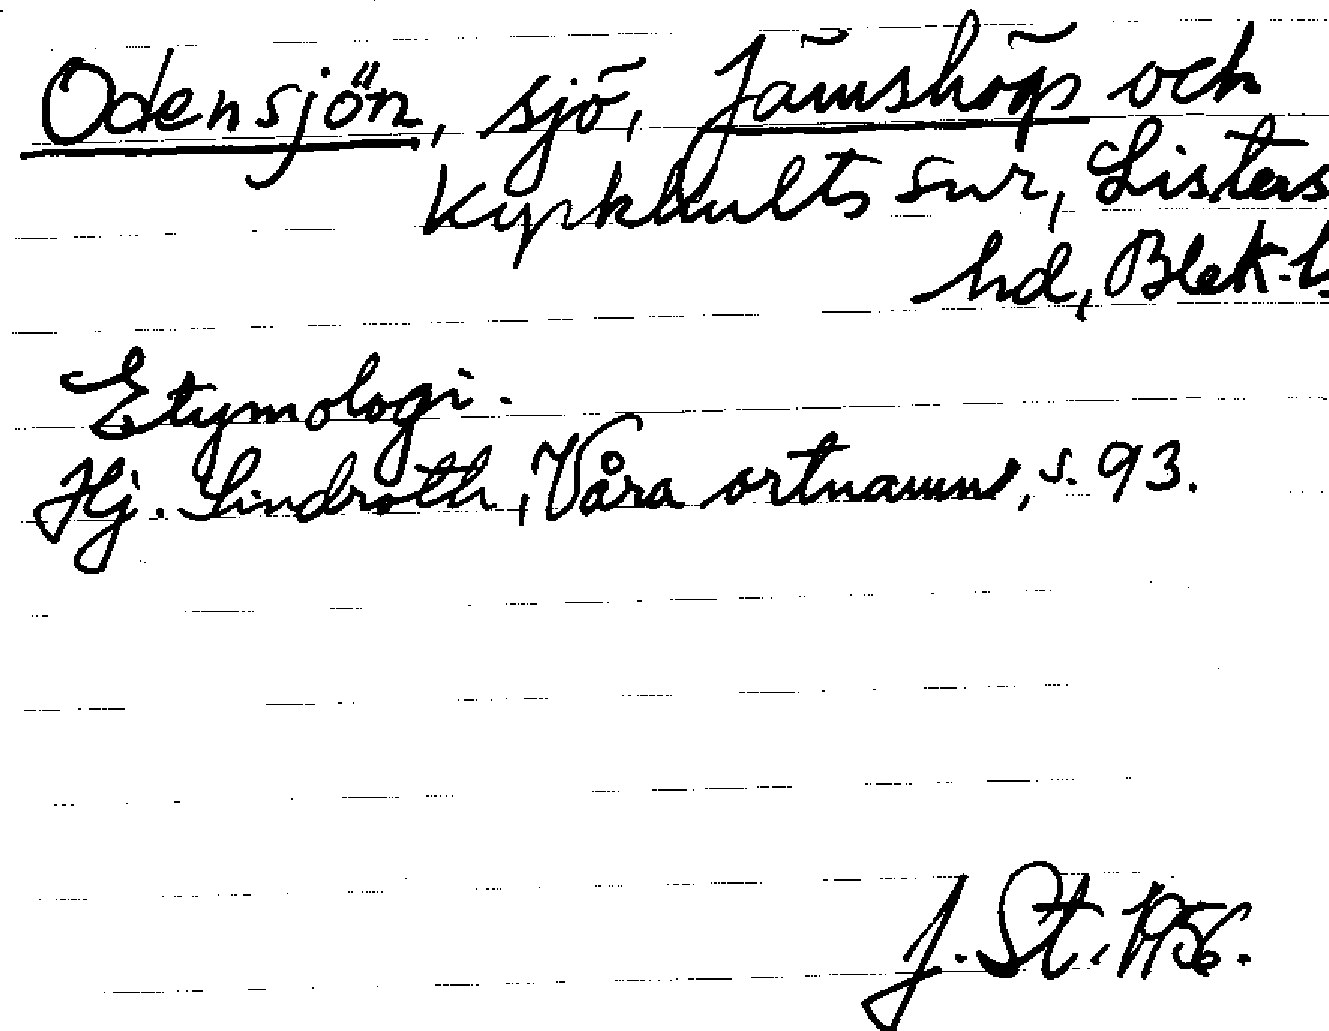 Odensjön, sjö, Jämshög och
Kyrkhults snr, Listers
hd, Blek. l.
Etymologi.
Hj. Lindroth, Våra ortnamn, s. 93.
J. St. 1956.